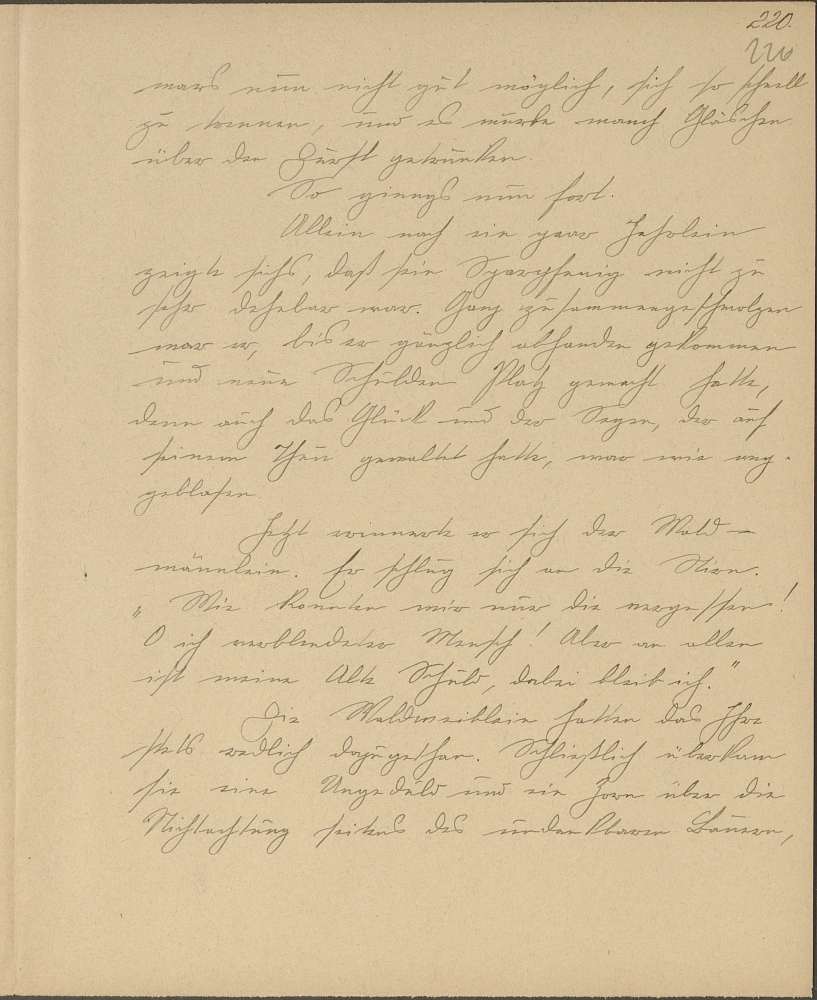 220.
220
wars nun nicht gut möglich, sich so schnell
zu trennen, und es wurde manch Gläschen
über den Durst getrunken.
So giengs nun fort.
Allein nach ein paar Jahrlein
zeigte sichs, daß sein Sparpfenig nicht zu
sehr dehnbar war. Ganz zusammengeschmolzen
war er, bis er gänzlich abhanden gekommen
und neuen Schulden Platz gemacht hatte,
denn auch das Glück und der Segen, der auf
seinem Thun gewaltet hatte, war wie weg-
geblasen.
Jetzt erinnerte er sich der Wald-
männlein. Er schlug sich an die Stirn.
„Wie konnten mir nur die vergessen!
O ich verblendeter Mensch! Aber an allem
ist meine Alte Schuld, dabei bleib ich."
Die Waldweiblein hatten das Ihre
stets redlich dazugethan. Schließlich überkam
sie eine Ungeduld und ein Zorn über die
Nichtachtung seitens des undankbaren Bauern,